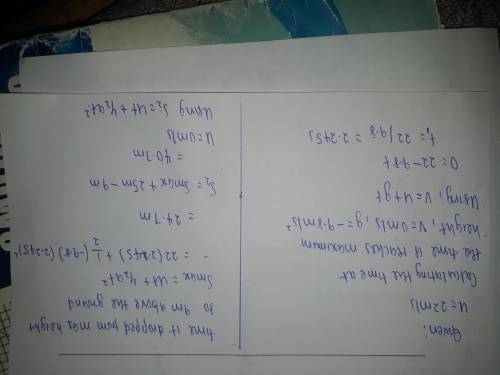 Given:
U = 22m/s
Calculating the time at
the time it reaches maximum
height, V=0m/s, g=-9.8m/s²
Using, V=U+gt
0=22-9.8t
t₁= 22/9.8 = 2.245s
time it dropped from max height
to 9m above the ground
Smax = Ut + ½at²
= 22(2.245) + 1/2 (-9.8)(2.245)²
= 24.7m
S₂= Smax + 25m - 9m
= 40.7m
U=0m/s
Using S₂=Ut + ½at²